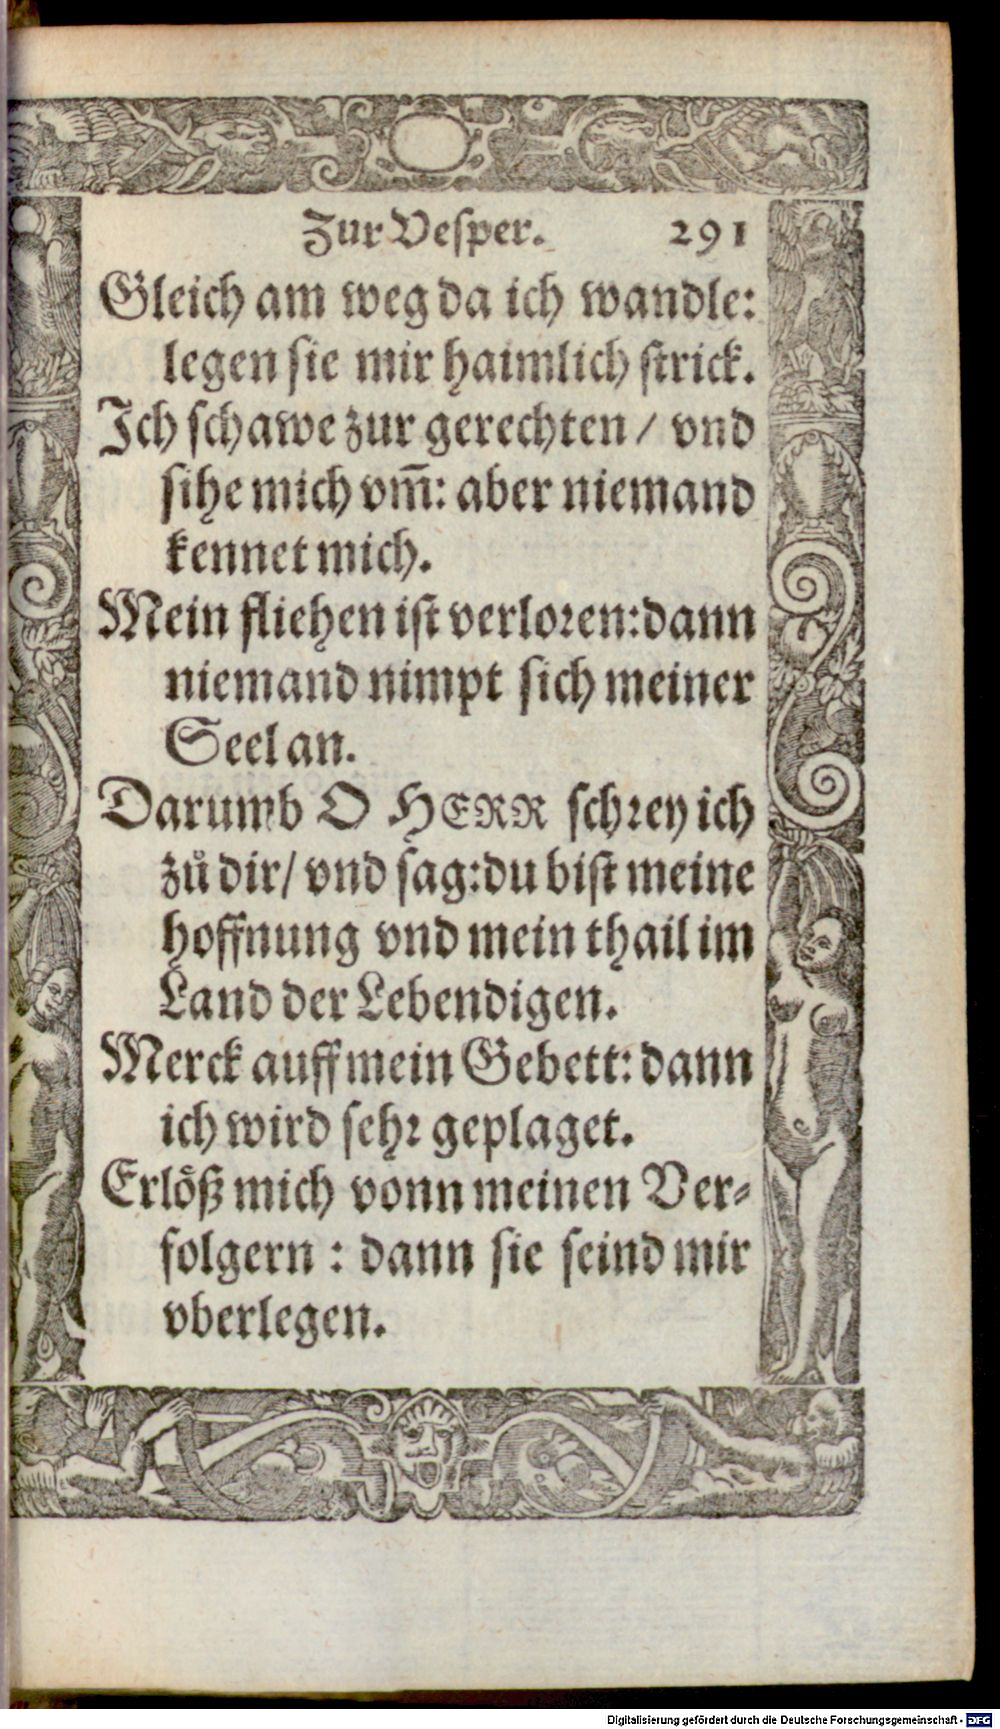 Zur Vesper. 291
Gleich am weg da ich wandle:
legen sie mir haimlich strick.
Ich schawe zur gerechten / vnd
sihe mich vm̃: aber niemand
kennet mich.
Mein fliehen ist verloren: dann
niemand nimpt sich meiner
Seel an.
Darumb O HERR schrey ich
zů dir/ vnd sag: du bist meine
hoffnung vnd mein thail im
Land der Lebendigen.
Merck auff mein Gebett: dann
ich wird sehr geplaget.
Erlöß mich vonn meinen Ver-
folgern : dann sie seind mir
vberlegen.
Digitalisierung gefördert durch die Deutsche Forschungsgemeinschaft - DFG